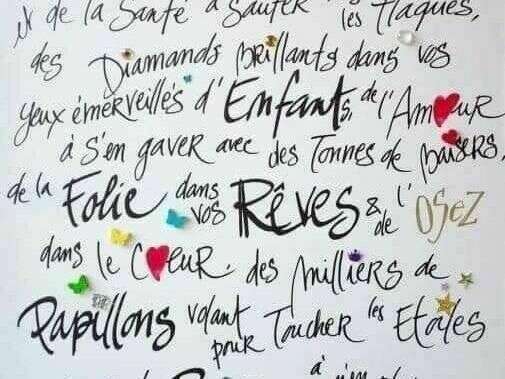 et de la Santé à Sauter les Flaques,
des Diamands Brillants dans vos
yeux émerveillés d'Enfants, de l'Amour
à S'en gaver avec des Tonnes de Baisers,
de la Folie dans vos Rêves & de l'Osez
dans le Coeur. des Milliers de
Papillons volant pour Toucher les Etoiles
à